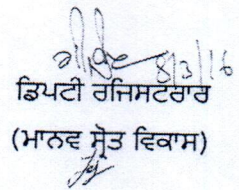 8/3/16
ਡਿਪਟੀ ਰਜਿਸਟਰਾਰ
(ਮਾਨਵ ਸ੍ਰੋਤ ਵਿਕਾਸ)